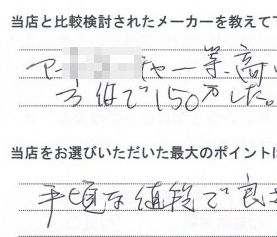 当店と比較検討されたメーカーを教えて
ア
一等高い
3倍で150万した。
当店をお選びいただいた最大のポイントに
手頃な値段で良さ